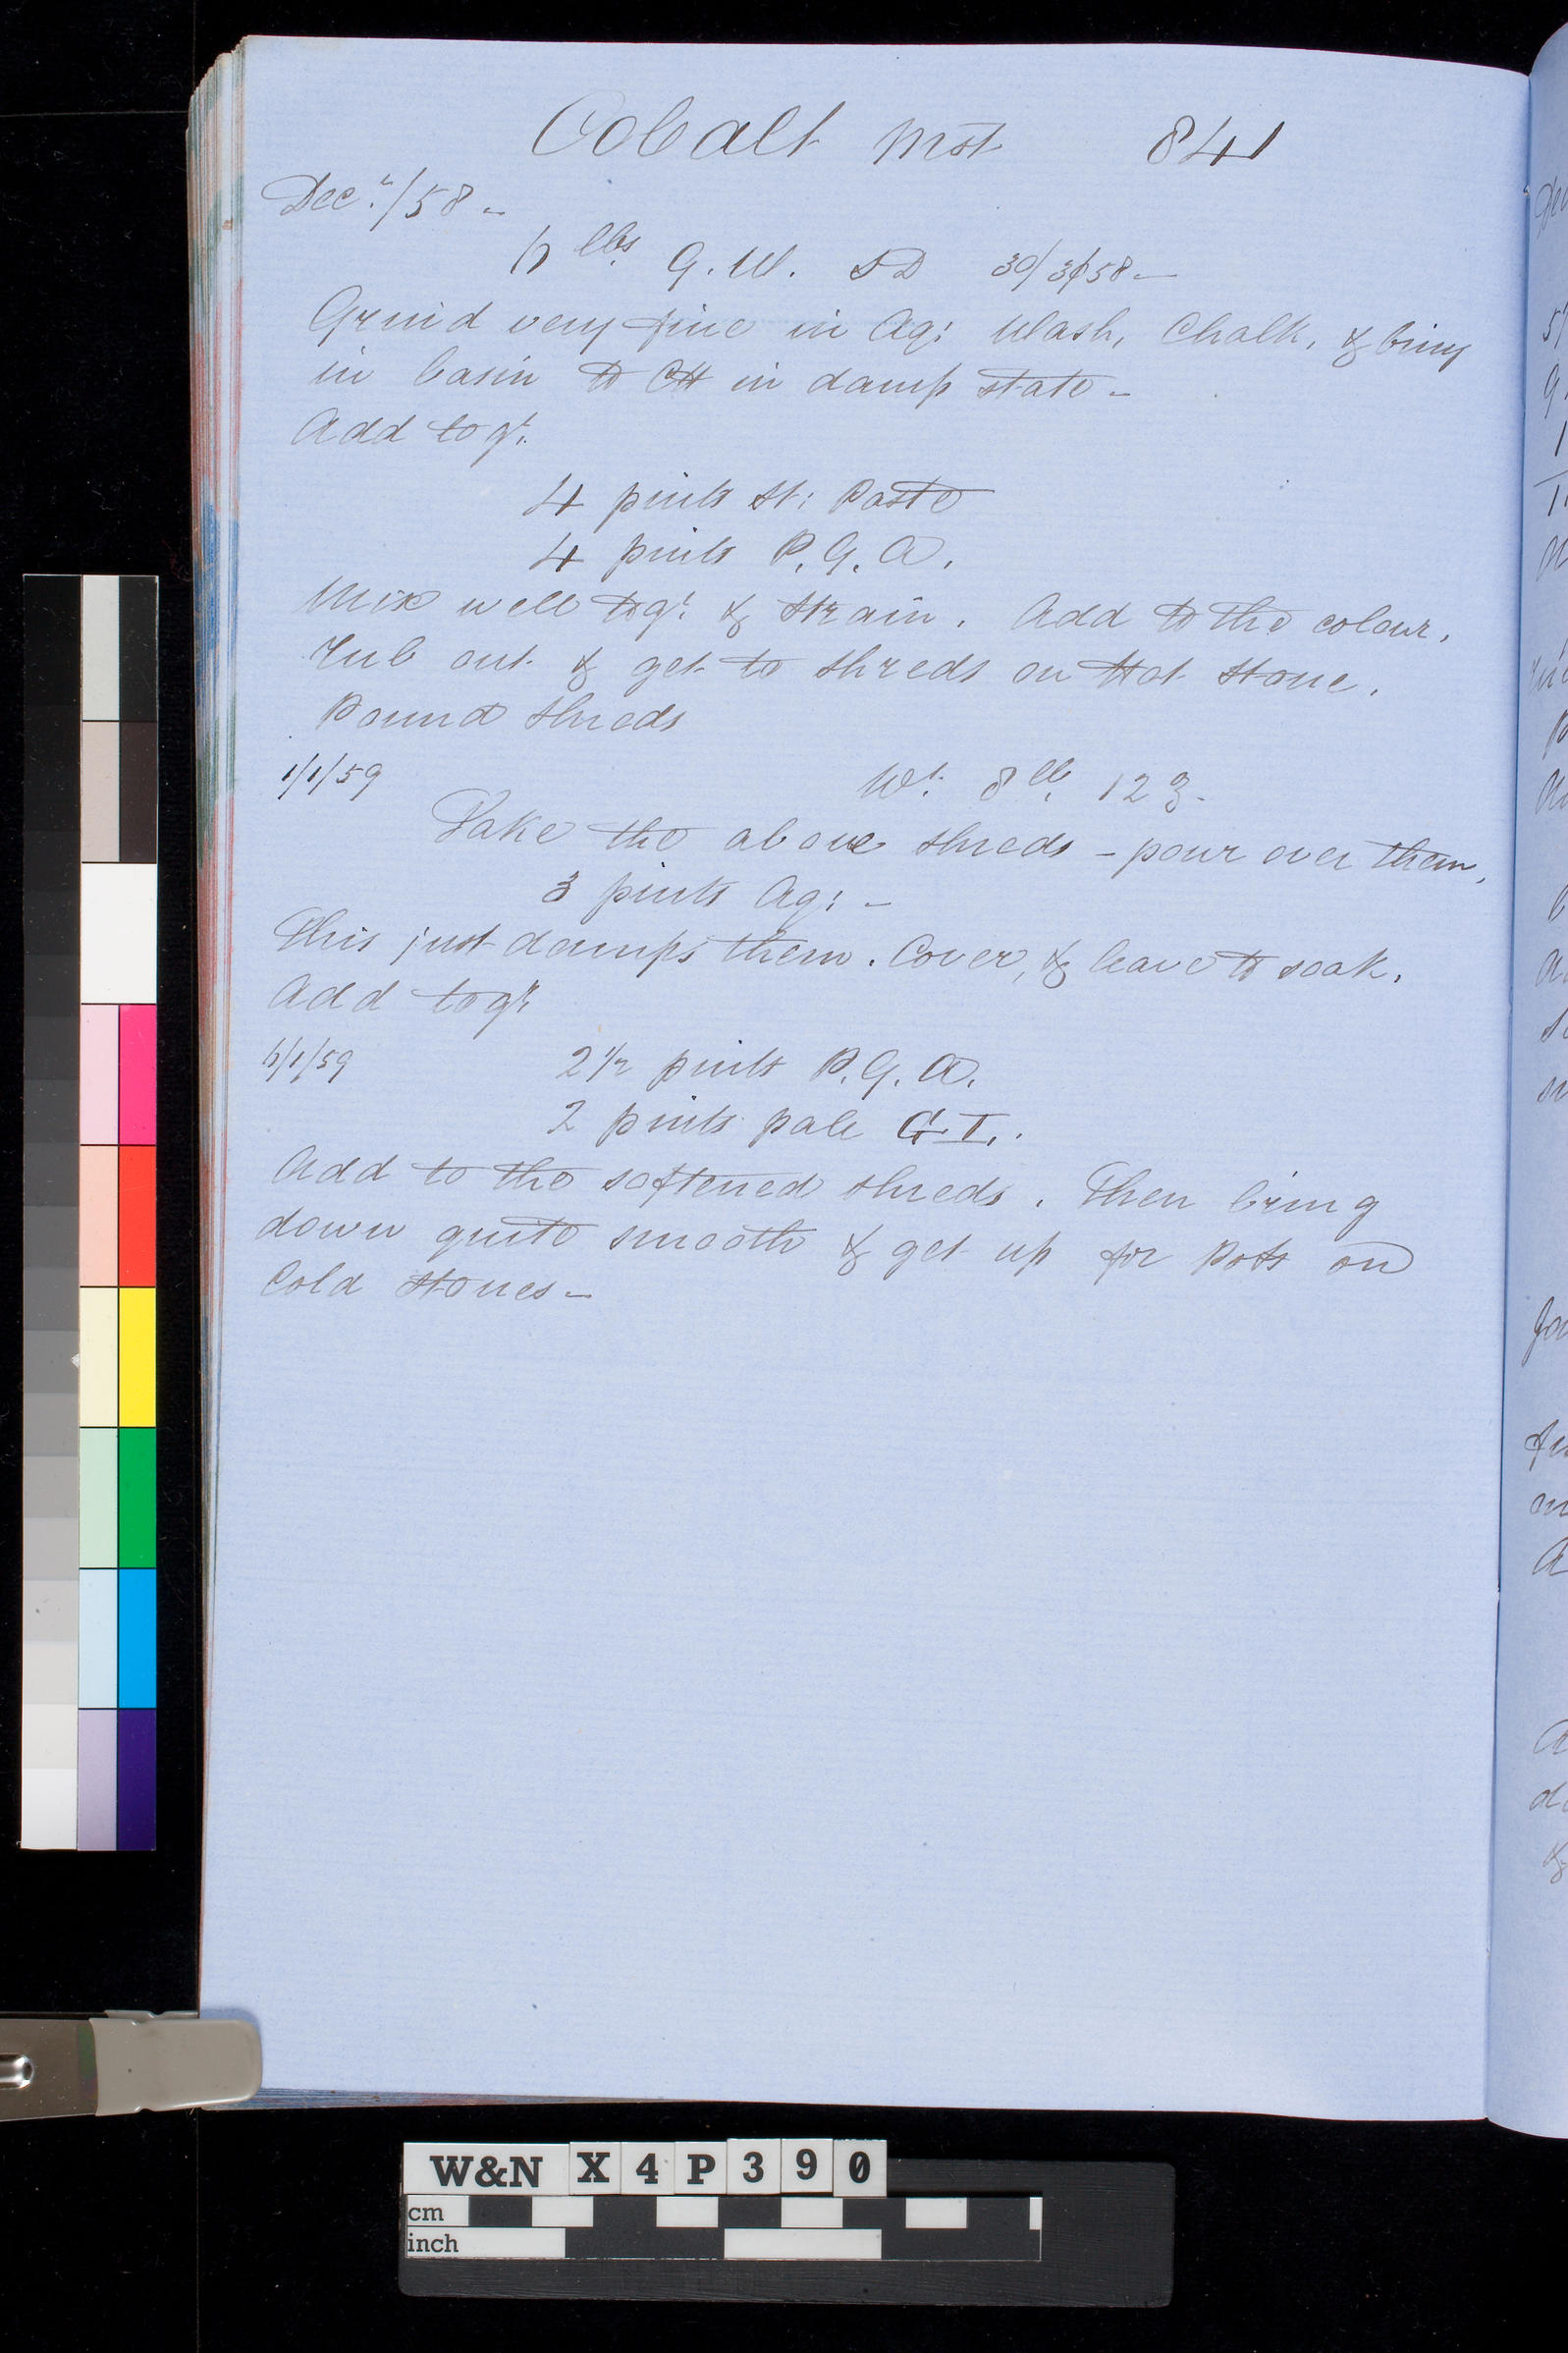 Cobalt Mst 841
Decr./58 -
lbs. G.W. SD 30/3/58 -
Grind very fine in Aq: Wash, Chalk, & bring
in basin to CH in damp state -
Add togr.
4 pints St: Paste
4 pints P.G.A.
Mix well togr. & strain. Add to the colour.
rub out & get to shreds on Hot Stone.
Pound shreds
1/1/59 Wt. 8 lb. 12 ℥.
Take the above shreds - pour over them,
3 pints Aq: -
This just damps them. Cover, & leave to soak.
Add togr.
/1/59 2 1/2 pints P.G.A.
2 pints pale G.T.
Add to the softened shreds. Then bring
down quite smooth & get up for Pots on
Cold Stones -
W&N X4P390
cm
inch